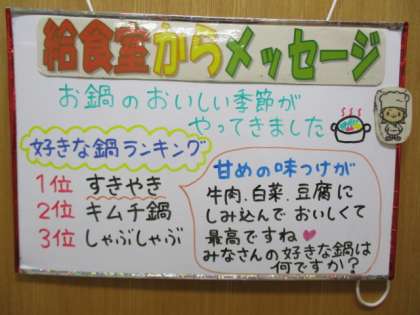 給食室からメッセージ
お鍋のおいしい季節が
やってきました
好きな鍋ランキング
1位 すきやき
2位 キムチ鍋
3位 しゃぶしゃぶ
甘めの味つけが
牛肉、白菜、豆腐に
しみ込んでおいしくて
最高ですね♥
みなさんの好きな鍋は
何ですか？